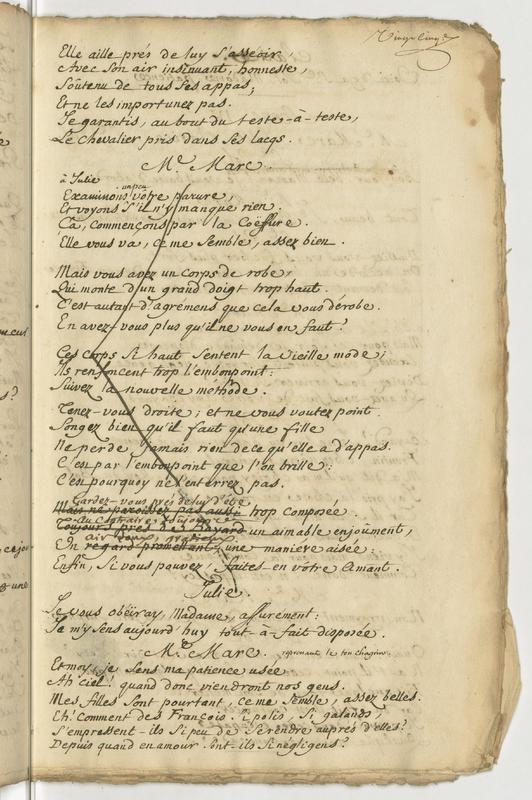 Vingt Cinq.
Elle aille prés de luy s'asseoir,
Avec son air insinuant, honneste,
Soûtenu de tous ses appas;
Et ne les importunez pas.
Je garantis, au bout du teste-à-teste,
Le Chevalier pris dans ses lacqs.
Me. Marc.
à Julie
un peu
Examinons vôtre parure,
Et voyons s'il n'y manque rien.
Ca, commençons par la Coëffure.
Elle vous va, ce me semble, assez bien.
Mais vous avez un corps de robe,
Qui monte d'un grand doigt trop haut.
C'est autant d'agrémens que cela vous dérobe.
En avez-vous plus qu'il ne vous en faut?
Ces corps si haut sentent la vieille mode;
Ils renfoncent trop l'embonpoint:
Suivez la nouvelle méthode.
Tenez-vous droite; et ne vous voutez point.
Songez bien qu'il faut qu'une fille
Ne perde jamais rien de ce qu'elle a d'appas.
C'est par l'embonpoint que l'on brille:
C'est pourquoy ne l'enterrez pas.
Gardez-vous prés de luy d'être
Mais ne paroissez pas aussi trop composée.
Au Contraire, toujours
Toujours prés un aimable enjoüment,
air doux, gratieux
Un regard promettant, une maniere aisée:
Enfin, si vous pouvez, faites-en vôtre Amant.
Julie.
Je vous obéiray, Madame, assurement:
Je m'y sens aujourd'huy tout-à-fait disposée.
Me. Marc. reprenant le ton chagrin.
Et moy, je sens ma patience usée.
Ah ciel! quand donc viendront nos gens.
Mes filles sont pourtant, ce me semble, assez belles.
Eh! Comment des François si polis, si galands,
S'empressent-ils si peu de se rendre auprés d'elles?
Depuis quand en amour sont-ils si négligens?